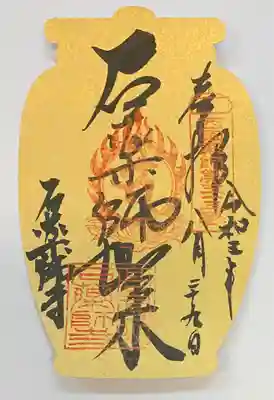 奉拝
令和三年
八月二十九日
石薬師如来
石薬師寺